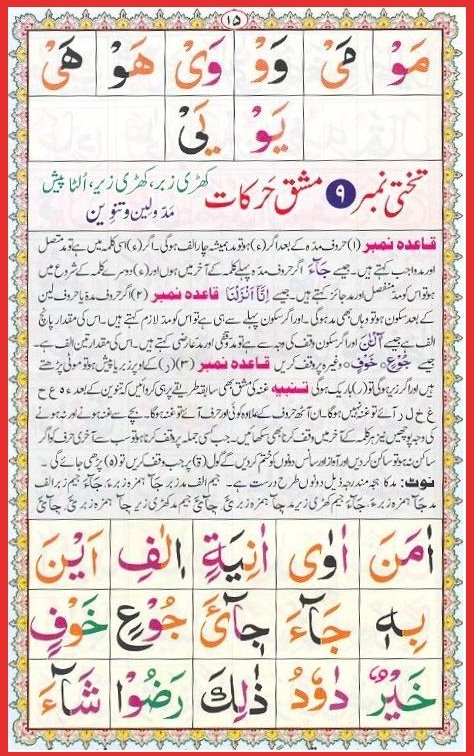 ۱۵
مَوْ مَیْ وَوْ وَیْ هَوْ هَیْ
یَوْ یَیْ
تختی نمبر ۹ مشق حَرکات کھڑی زبر، کھڑی زیر، اُلٹا پیش
مَدّ و لین و تنوین
قاعدہ نمبر (۱) حروف مدّہ کے بعد اگر (ء) ہو تو مد ہمیشہ چار الف ہوگی۔ اگر (ء) اسی کلمہ میں ہے تو مد متصل
اور مد واجب کہتے ہیں۔ جیسے جَآءَ اگر حروف مدّہ پہلے کلمہ کے آخر میں ہوں اور (ء) دوسرے کلمہ کے شروع میں
ہو تو اس کو مد منفصل اور مد جائز کہتے ہیں۔ جیسے اِنَّآ اَنْزَلْنَا قاعدہ نمبر (۲) اگر حروف مدّہ یا حروف لین
کے بعد سکون ہو تو وہاں بھی مد ہوگی۔ اور اگر سکون پہلے سے ہی ہے تو اس کو مد لازم کہتے ہیں۔ اس کی مقدار پانچ
الف ہے جیسے آلْـٰٔنَ اور اگر سکون وقف کی وجہ سے ہے تو مد وقفی اور مد عارضی کہتے ہیں۔ اس کی مقدار تین الف ہے۔
جیسے جُوْعٍ، خَوْفٍ وغیرہ پر وقف کریں قاعدہ نمبر (۳) (ر) کے اوپر زبر یا پیش ہو تو موٹی پڑھتے
ہیں اور اگر زیر ہوگی تو (ر) باریک ہوگی تنبیہ غنہ کی مشق بھی سابقہ طریقے پر ہی کروائیں کہ تنوین کے بعد ء ہ ع ح
غ خ ل ر آئے تو غنہ نہیں ہوگا۔ ان آٹھ حروف کے علاوہ کوئی اور حرف آئے تو غنہ ہوگا۔ بچے سے غنہ ہونے اور نہ ہونے
کی وجہ پوچھیں نیز ہر کلمہ کے آخر میں وقف کرنا بھی سکھائیں۔ جب کسی جملہ پر وقف کرنا ہو تو سب سے آخری حرف کو اگر
ساکن نہ ہو تو ساکن کر دیں اور آواز اور سانس دونوں کو ختم کر دیں گے گول (ة) پر جب وقف کریں تو (ہ) پڑھی جائے گی۔
نوٹ: مد کا ہجے مندرجہ ذیل دونوں طرح درست ہے۔ جیم الف مد زبر جَآ ہمزہ زبر ءَ جَآءَ جیم زبر الف
مد جَآ ہمزہ زبر ءَ جَآءَ جیم کھڑی زیر مد
اٰمَنَ اٰوٰی اٰنِیَةٍ اِلٰفِ اَیْنَ
بِهٖ جَآءَ جِآیْٓءَ جُوْعٍ خَوْفٍ
خَیْرٌ دَاوٗدُ ذٰلِكَ رَضُوْا شَآءَ